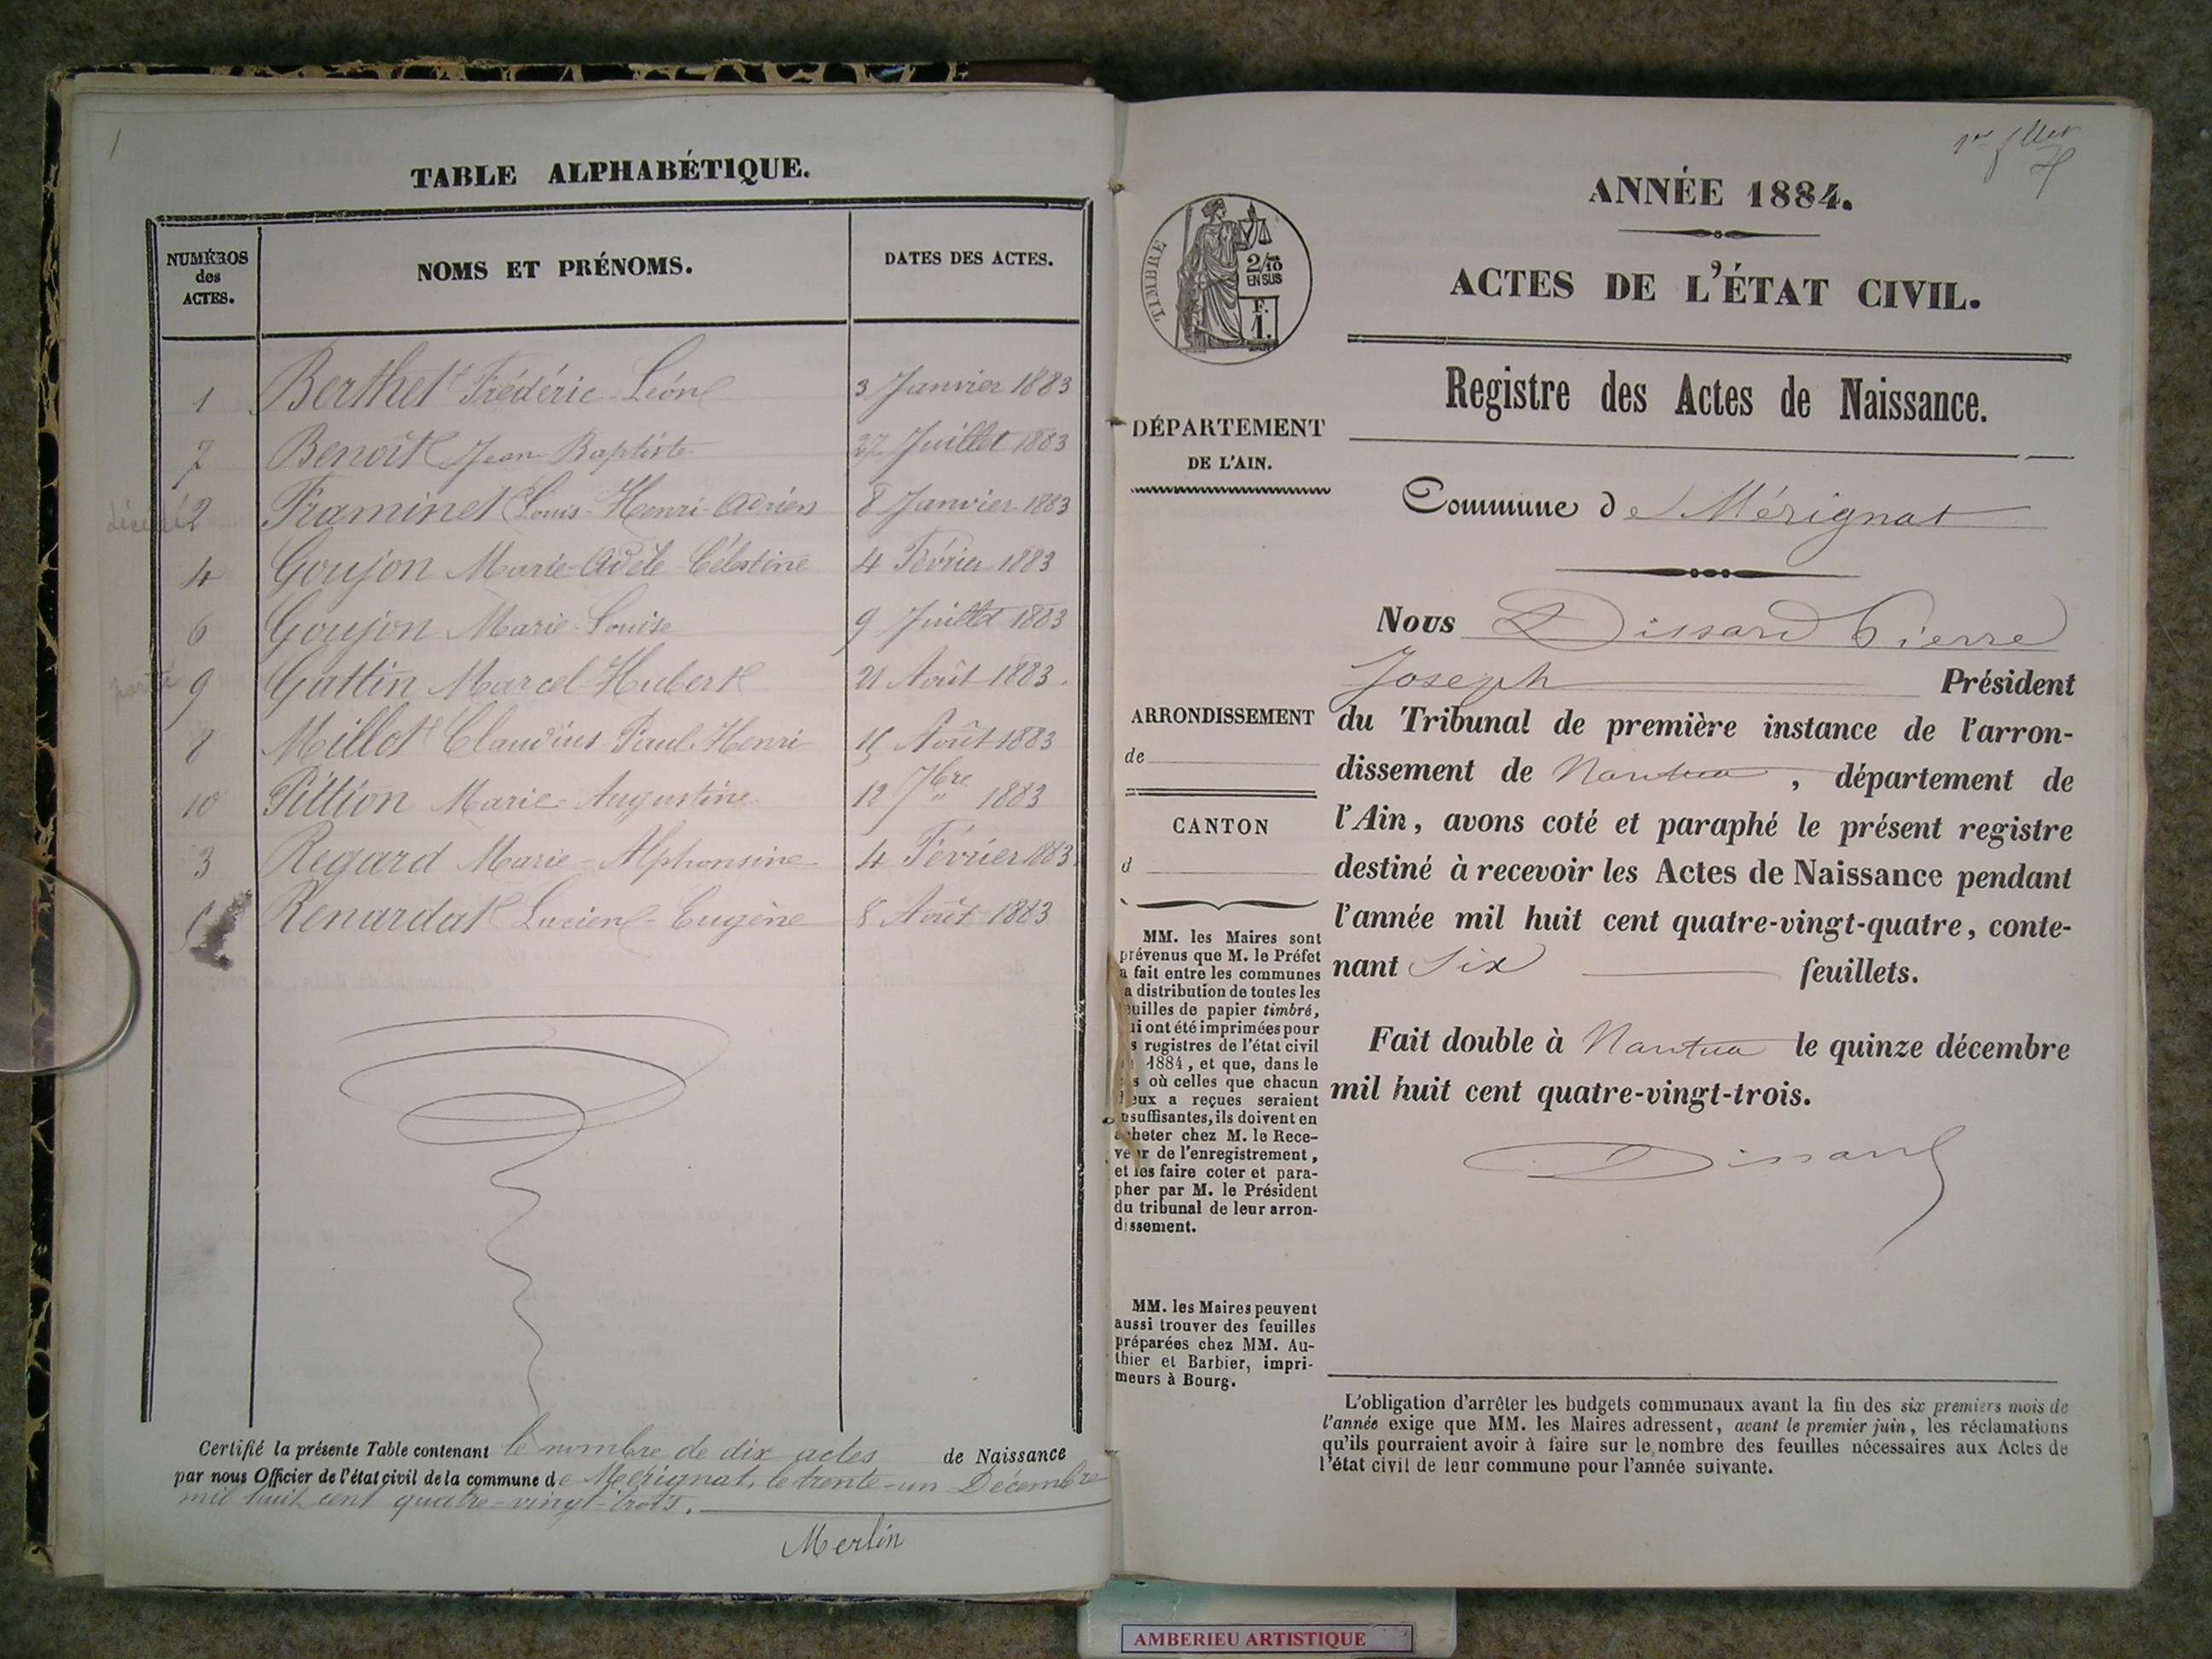 TABLE ALPHABÉTIQUE.
NUMÉROS des ACTES. NOMS ET PRÉNOMS. DATES DES ACTES.
1 Berthet Frédéric-Léon 3 Janvier 1883
7 Benoît Jean-Baptiste 27 Juillet 1883
décédé 2 Framinet Louis-Henri-Adrien 8 Janvier 1883
4 Goujon Marie-Adèle-Célestine 4 Février 1883
6 Goujon Marie-Louise 9 Juillet 1883
9 Guttin Marcel-Hubert 21 Août 1883.
8 Millot Claudius-Paul-Henri 15 Août 1883
10 Pittion Marie-Augustine 12 7bre 1883
3 Regard Marie-Alphonsine 4 Février 1883
Renardat Lucien-Eugène 8 Août 1883
Certifié la présente Table contenant le nombre de dix actes de Naissance
par nous Officier de l'état civil de la commune de Mérignat, le trente-un Décembre
mil huit cent quatre-vingt-trois.
Merlin
1er fllet
ANNÉE 1884.
ACTES DE L'ÉTAT CIVIL.
Registre des Actes de Naissance.
TIMBRE
2/10
EN SUS
F.
1.
DÉPARTEMENT
DE L'AIN.
Commune de Mérignat
Nous Dissard Pierre
Joseph Président
du Tribunal de première instance de l'arron-
dissement de Nantua, département de
l'Ain, avons coté et paraphé le présent registre
destiné à recevoir les Actes de Naissance pendant
l'année mil huit cent quatre-vingt-quatre, conte-
nant six feuillets.
Fait double à Nantua le quinze décembre
mil huit cent quatre-vingt-trois.
Dissard
ARRONDISSEMENT
de
CANTON
d
MM. les Maires sont
prévenus que M. le Préfet
a fait entre les communes
a distribution de toutes les
euilles de papier timbré,
ui ont été imprimées pour
s registres de l'état civil
1884, et que, dans le
s où celles que chacun
eux a reçues seraient
nsuffisantes, ils doivent en
acheter chez M. le Rece-
veur de l'enregistrement,
et les faire coter et para-
pher par M. le Président
du tribunal de leur arron-
dissement.
MM. les Maires peuvent
aussi trouver des feuilles
préparées chez MM. Au-
thier et Barbier, impri-
meurs à Bourg.
L'obligation d'arrêter les budgets communaux avant la fin des six premiers mois de
l'année exige que MM. les Maires adressent, avant le premier juin, les réclamations
qu'ils pourraient avoir à faire sur le nombre des feuilles nécessaires aux Actes de
l'état civil de leur commune pour l'année suivante.
AMBERIEU ARTISTIQUE